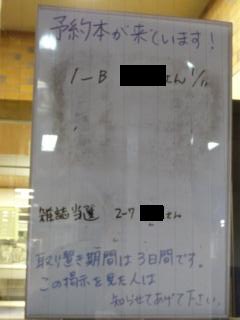 予約本が来ています!
1-B さん 1/11
雑誌当選 2-7 さん
取り置き期間は3日間です。
この掲示を見た人は
知らせてあげて下さい。